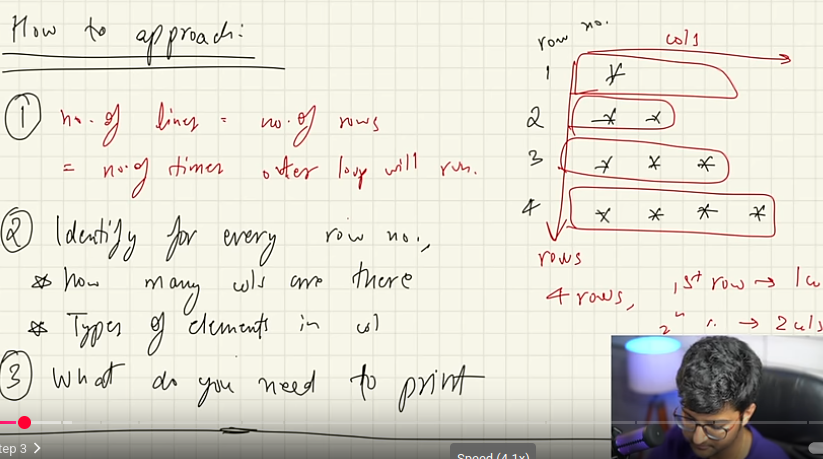 How to approach:
① no. of lines = no. of rows
= no. of times outer loop will run.
② Identify for every row no.,
* how many cols are there
* Types of elements in col
③ What do you need to print
row no.
cols
1 *
2 * *
3 * * *
4 * * * *
rows
4 rows, 1st row → 1 co
2n → 2 cols
tep 3 >
Speed (4.1x)